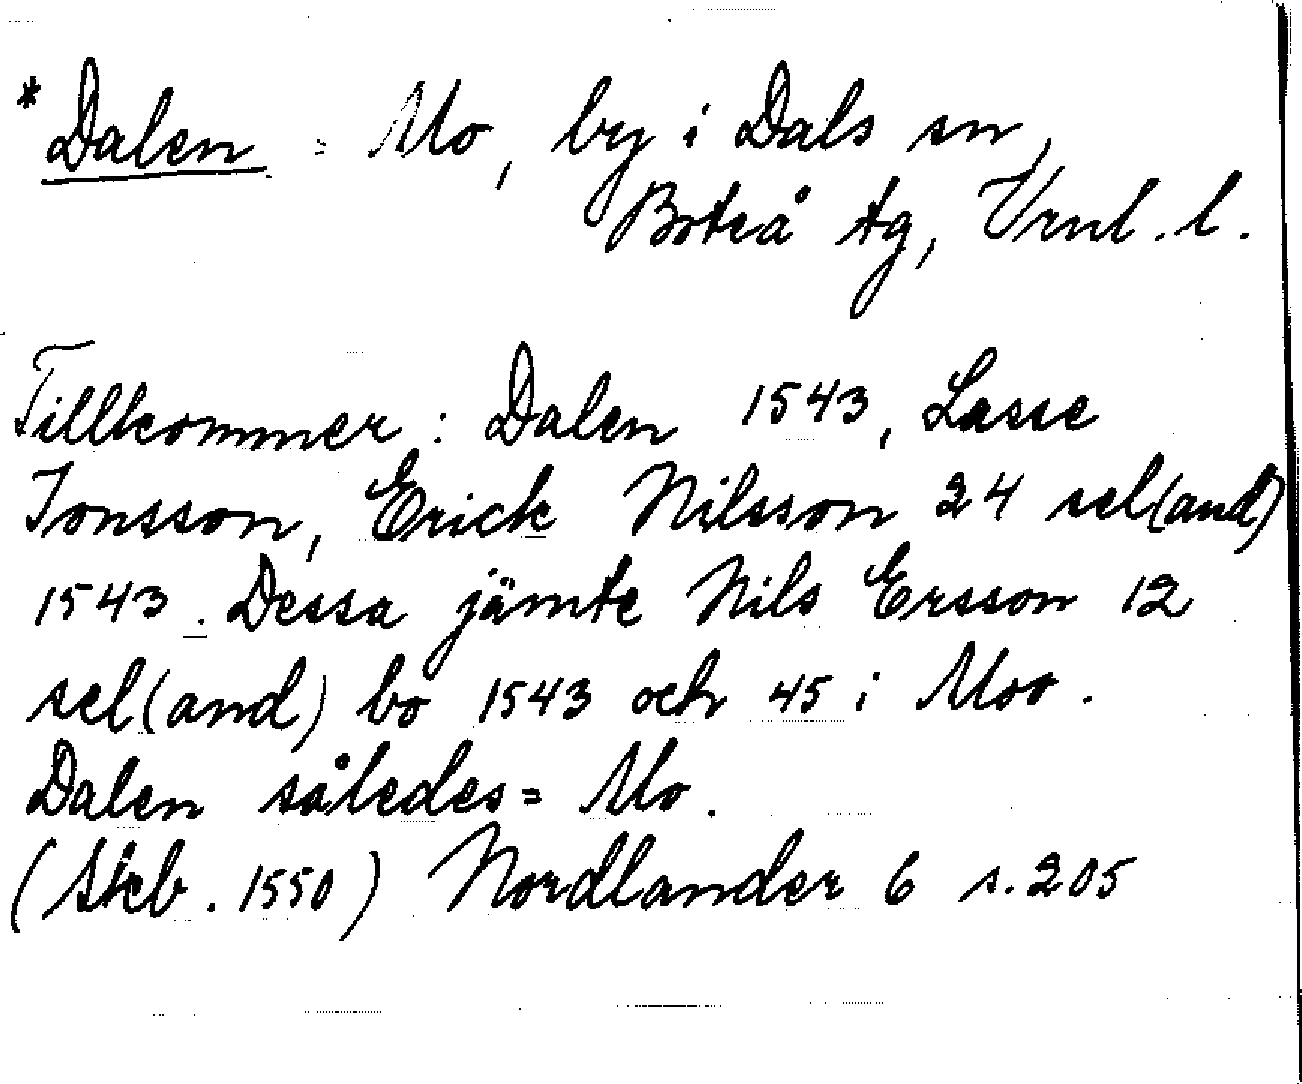 *Dalen = Mo, by i Dals sn,
Boteå tg, Vrnl. l.
Tillkommer: Dalen 1543, Lasse
Jonsson, Erick Nilsson 24 sel(and)
1543. Dessa jämte Nils Ersson 12
sel(and) bo 1543 och 45 i Moo.
Dalen således = Mo.
(Skb. 1550) Nordlander 6 s. 205